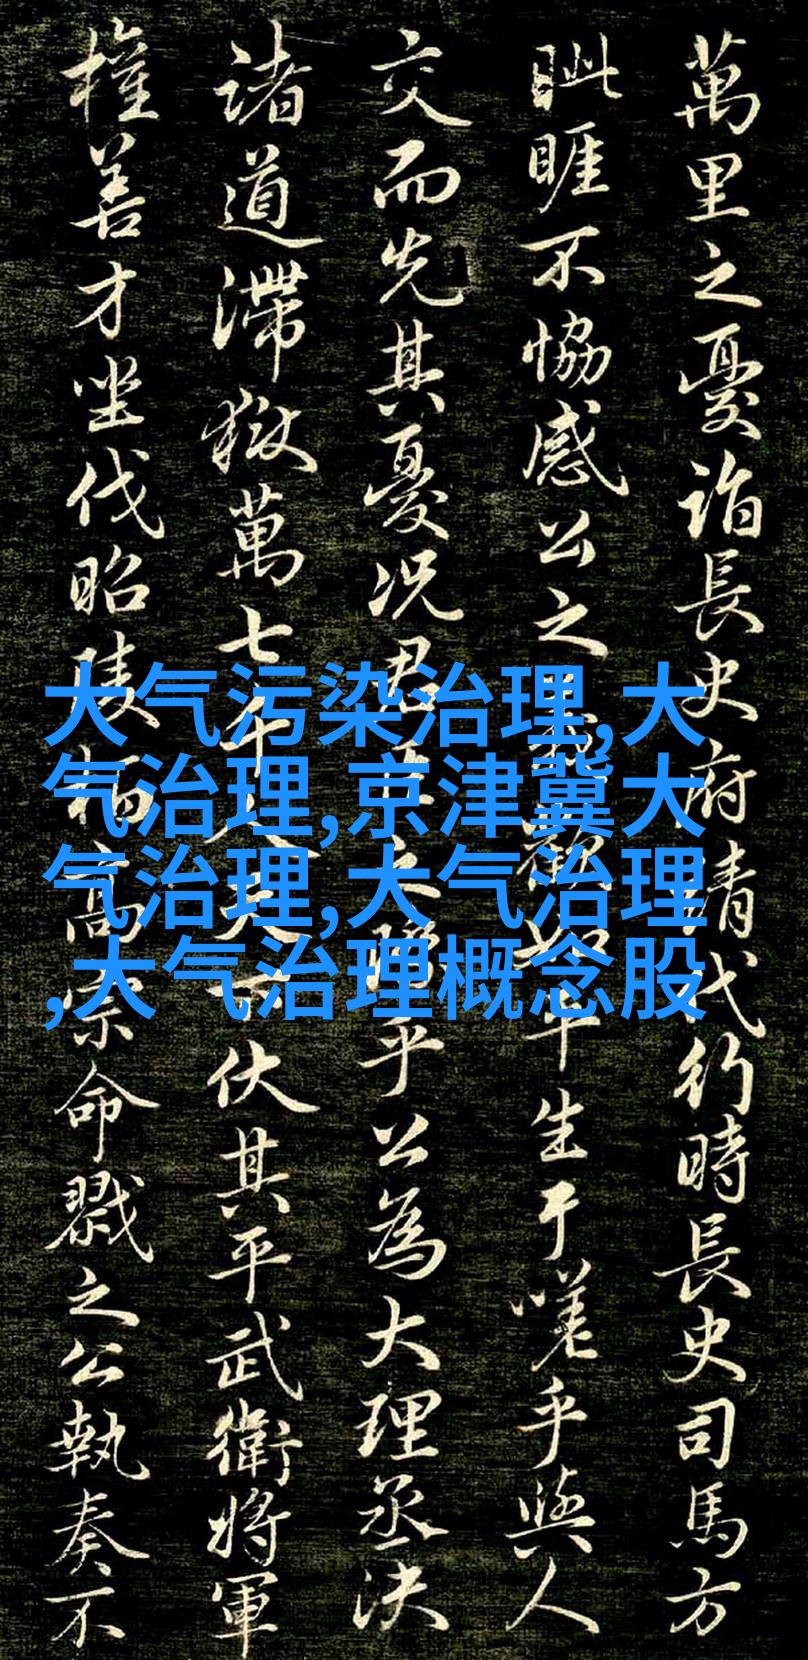 萬里之憂詣長史府請代行時長史司馬方
眦睚不協感公之義歡如平生于嗟乎與人
交而先其憂況君臣之際乎公為大理丞決
諸道滯獄萬七千人天下伏其平武衛將軍
權善才坐伐昭陵柏高宗命戮之公執奏不
大气污染治理,大
气治理,京津冀大
气治理,大气治理
,大气治理概念股